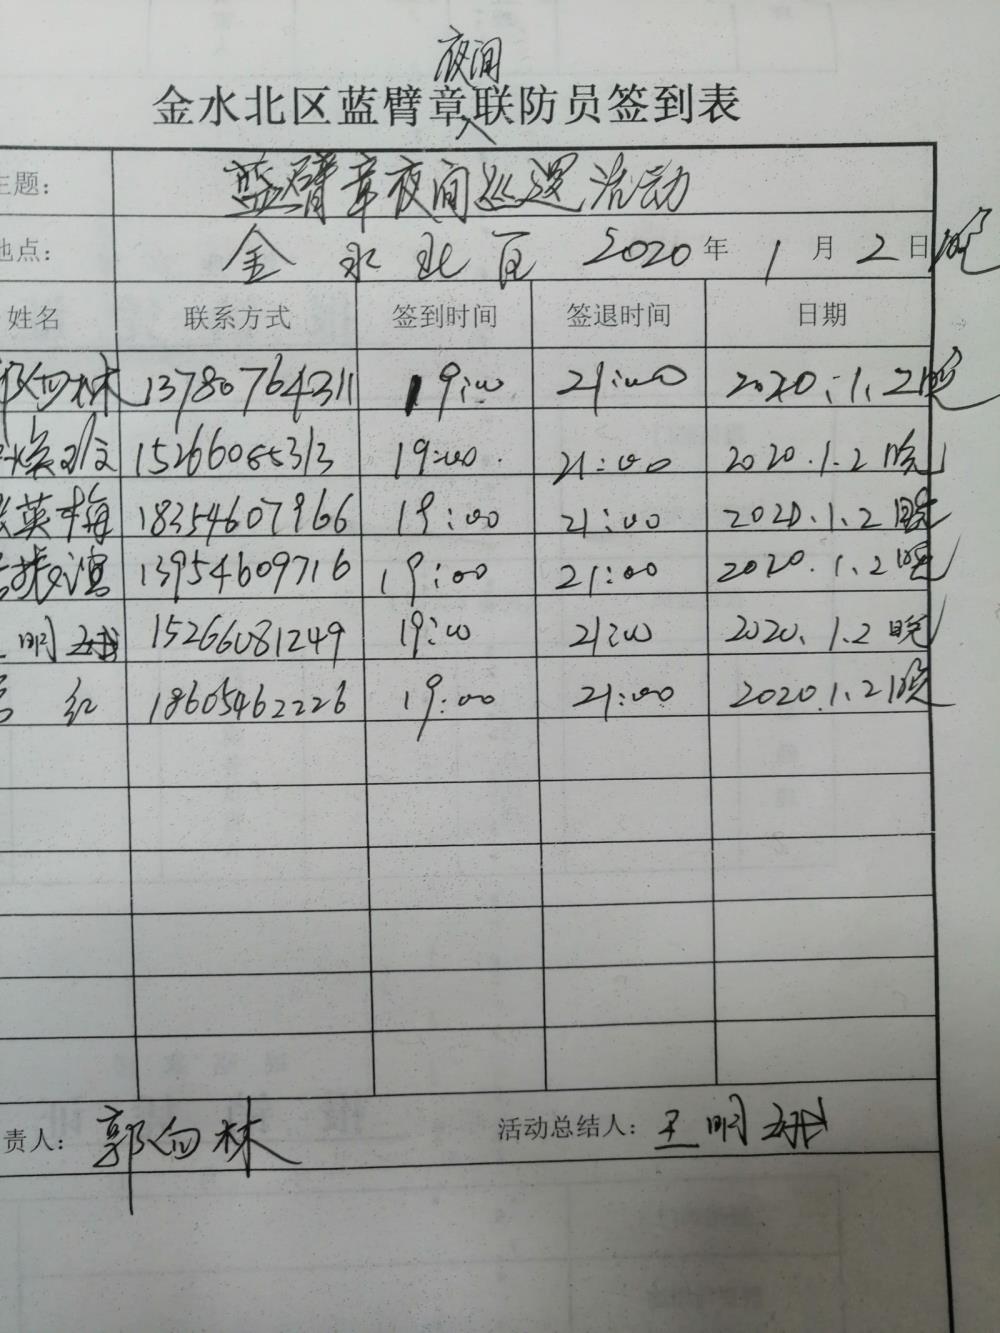 夜间
金水北区蓝臂章联防员签到表
主题： 蓝臂章夜间巡逻活动
地点： 金水北区 2020年1月2日晚
姓名 联系方式 签到时间 签退时间 日期
郭向林 13780764311 19:00 21:00 2020.1.2晚
15266085313 19:00 21:00 2020.1.2晚
张英梅 18354607966 19:00 21:00 2020.1.2晚
13954609716 19:00 21:00 2020.1.2晚
王明娥 15266081249 19:00 21:00 2020.1.2晚
红 18605462226 19:00 21:00 2020.1.2晚
责人： 郭向林 活动总结人： 王明娥